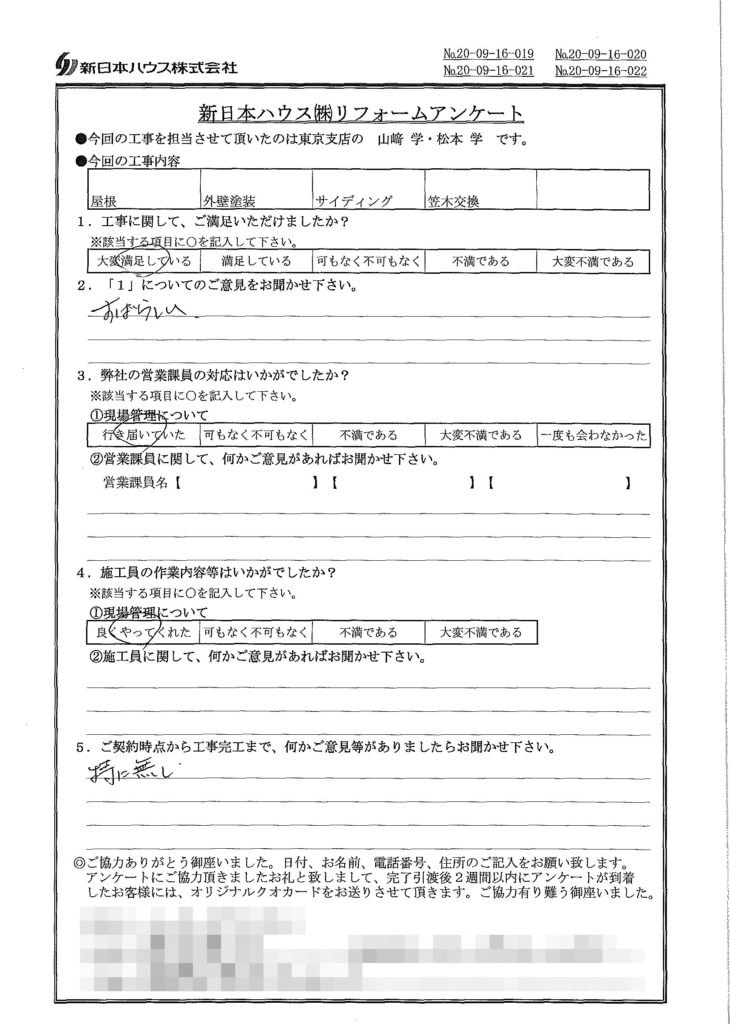 新日本ハウス株式会社
No.20-09-16-019 No.20-09-16-020
No.20-09-16-021 No.20-09-16-022
新日本ハウス㈱リフォームアンケート
●今回の工事を担当させて頂いたのは東京支店の 山﨑 学・松本 学 です。
●今回の工事内容
屋根 外壁塗装 サイディング 笠木交換
1．工事に関して、ご満足いただけましたか？
※該当する項目に○を記入して下さい。
大変満足している 満足している 可もなく不可もなく 不満である 大変不満である
2．「1」についてのご意見をお聞かせ下さい。
すばらしい.
3．弊社の営業課員の対応はいかがでしたか？
※該当する項目に○を記入して下さい。
①現場管理について
行き届いていた 可もなく不可もなく 不満である 大変不満である 一度も会わなかった
②営業課員に関して、何かご意見があればお聞かせ下さい。
営業課員名【 】【 】【 】
4．施工員の作業内容等はいかがでしたか？
※該当する項目に○を記入して下さい。
①現場管理について
良くやってくれた 可もなく不可もなく 不満である 大変不満である
②施工員に関して、何かご意見があればお聞かせ下さい。
5．ご契約時点から工事完工まで、何かご意見等がありましたらお聞かせ下さい。
特に無し
◎ご協力ありがとう御座いました。日付、お名前、電話番号、住所のご記入をお願い致します。
アンケートにご協力頂きましたお礼と致しまして、完了引渡後２週間以内にアンケートが到着
したお客様には、オリジナルクオカードをお送りさせて頂きます。ご協力有り難う御座いました。